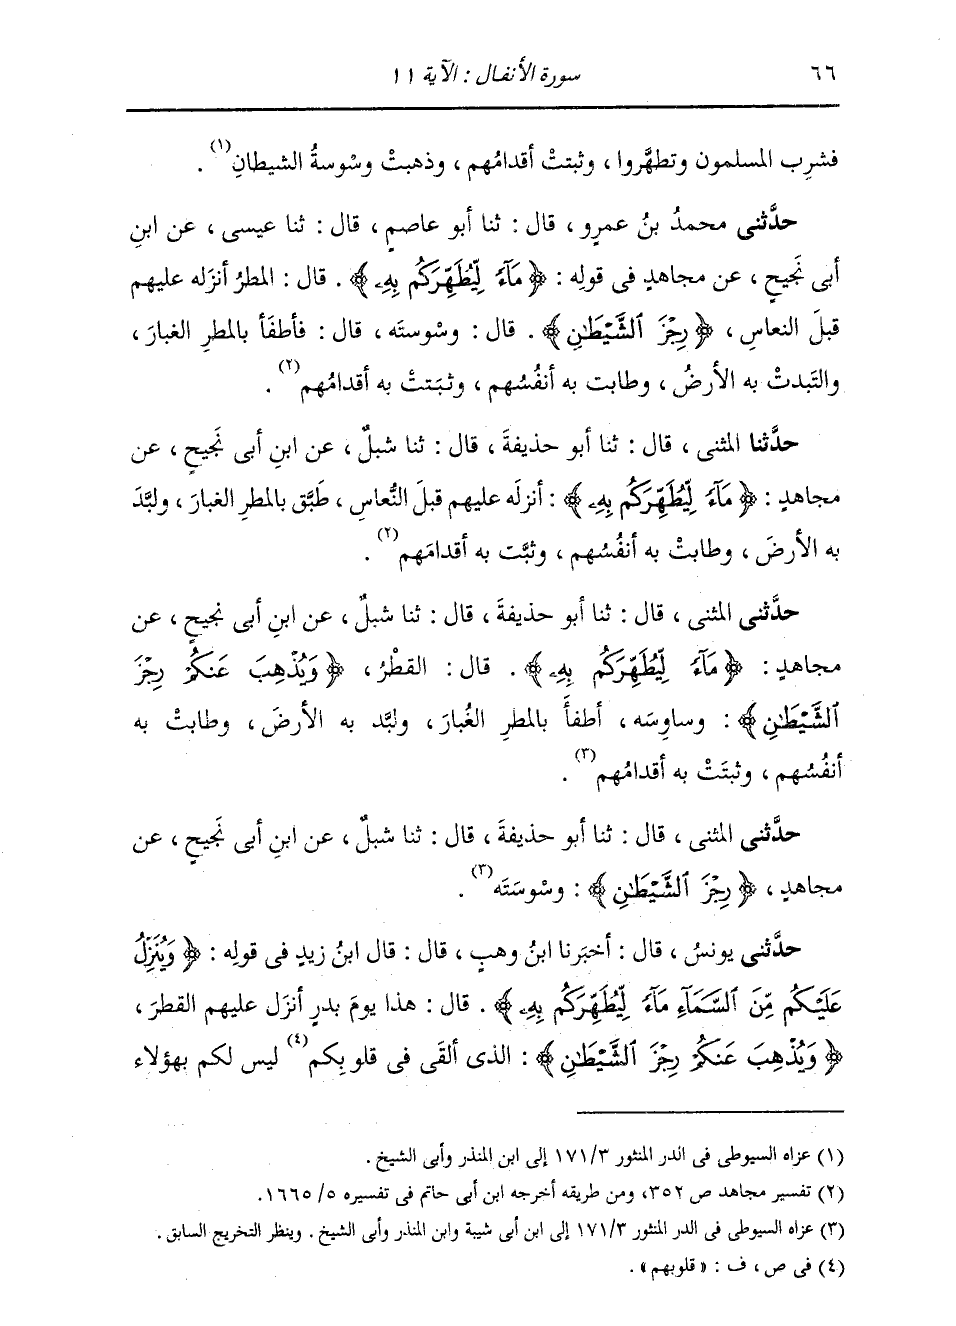 ٦٦
سورة الأنفال : الآية ١١
فشرِب المسلمون وتطهَّروا ، وثبتتْ أقدامُهم ، وذهبتْ وسْوسةُ الشيطانِ(١) .
حدَّثني محمدُ بنُ عمرٍو ، قال : ثنا أبو عاصمٍ ، قال : ثنا عيسى ، عن ابنِ
أبى نَجيحٍ ، عن مجاهدٍ فى قولِه : ﴿ مَآءً لِّيُطَهِّرَكُم بِهِۦ ﴾ . قال : المطرُ أنزَله عليهم
قبلَ النعاسِ ، ﴿ رِجْزَ ٱلشَّيْطَٰنِ ﴾ . قال : وسْوستَه ، قال : فأطفَأ بالمطرِ الغبارَ ،
والتَبدتْ به الأرضُ ، وطابت به أنفُسُهم ، وثبَتتْ به أقدامُهم(٢) .
حدَّثنا المثنى ، قال : ثنا أبو حذيفةَ ، قال : ثنا شبلٌ ، عن ابنِ أبى نَجيحٍ ، عن
مجاهدٍ : ﴿ مَآءً لِّيُطَهِّرَكُم بِهِۦ ﴾ : أنزلَه عليهم قبلَ النُّعاسِ ، طَبَّق بالمطرِ الغبارَ ، ولبَّدَ
به الأرضَ ، وطابتْ به أنفُسُهم ، وثبَّت به أقدامَهم(٢) .
حدَّثني المثنى ، قال : ثنا أبو حذيفةَ ، قال : ثنا شبلٌ ، عن ابنِ أبى نجيحٍ ، عن
مجاهدٍ : ﴿ مَآءً لِّيُطَهِّرَكُم بِهِۦ ﴾ . قال : القطْرُ ، ﴿ وَيُذْهِبَ عَنكُمْ رِجْزَ
ٱلشَّيْطَٰنِ ﴾ : وساوِسَه ، أطفأَ بالمطرِ الغُبارَ ، ولبَّد به الأرضَ ، وطابتْ به
أنفُسُهم ، وثبتَتْ به أقدامُهم(٣) .
حدَّثني المثنى ، قال : ثنا أبو حذيفةَ ، قال : ثنا شبلٌ ، عن ابنِ أبى نَجيحٍ ، عن
مجاهدٍ ، ﴿ رِجْزَ ٱلشَّيْطَٰنِ ﴾ : وسْوسَتَه(٣) .
حدَّثني يونسُ ، قال : أخبَرنا ابنُ وهبٍ ، قال : قال ابنُ زيدٍ فى قولِه : ﴿ وَيُنَزِّلُ
عَلَيْكُم مِّنَ ٱلسَّمَآءِ مَآءً لِّيُطَهِّرَكُم بِهِۦ ﴾ . قال : هذا يومَ بدرٍ أنزَل عليهم القطرَ ،
﴿ وَيُذْهِبَ عَنكُمْ رِجْزَ ٱلشَّيْطَٰنِ ﴾ : الذى ألقَى فى قلوبِكم(٤) ليس لكم بهؤلاء
(١) عزاه السيوطى فى الدر المنثور ١٧١/٣ إلى ابن المنذر وأبى الشيخ .
(٢) تفسير مجاهد ص ٣٥٢، ومن طريقه أخرجه ابن أبى حاتم فى تفسيره ٥/ ١٦٦٥.
(٣) عزاه السيوطى فى الدر المنثور ١٧١/٣ إلى ابن أبى شيبة وابن المنذر وأبى الشيخ . وينظر التخريج السابق .
(٤) فى ص ، ف : « قلوبهم » .